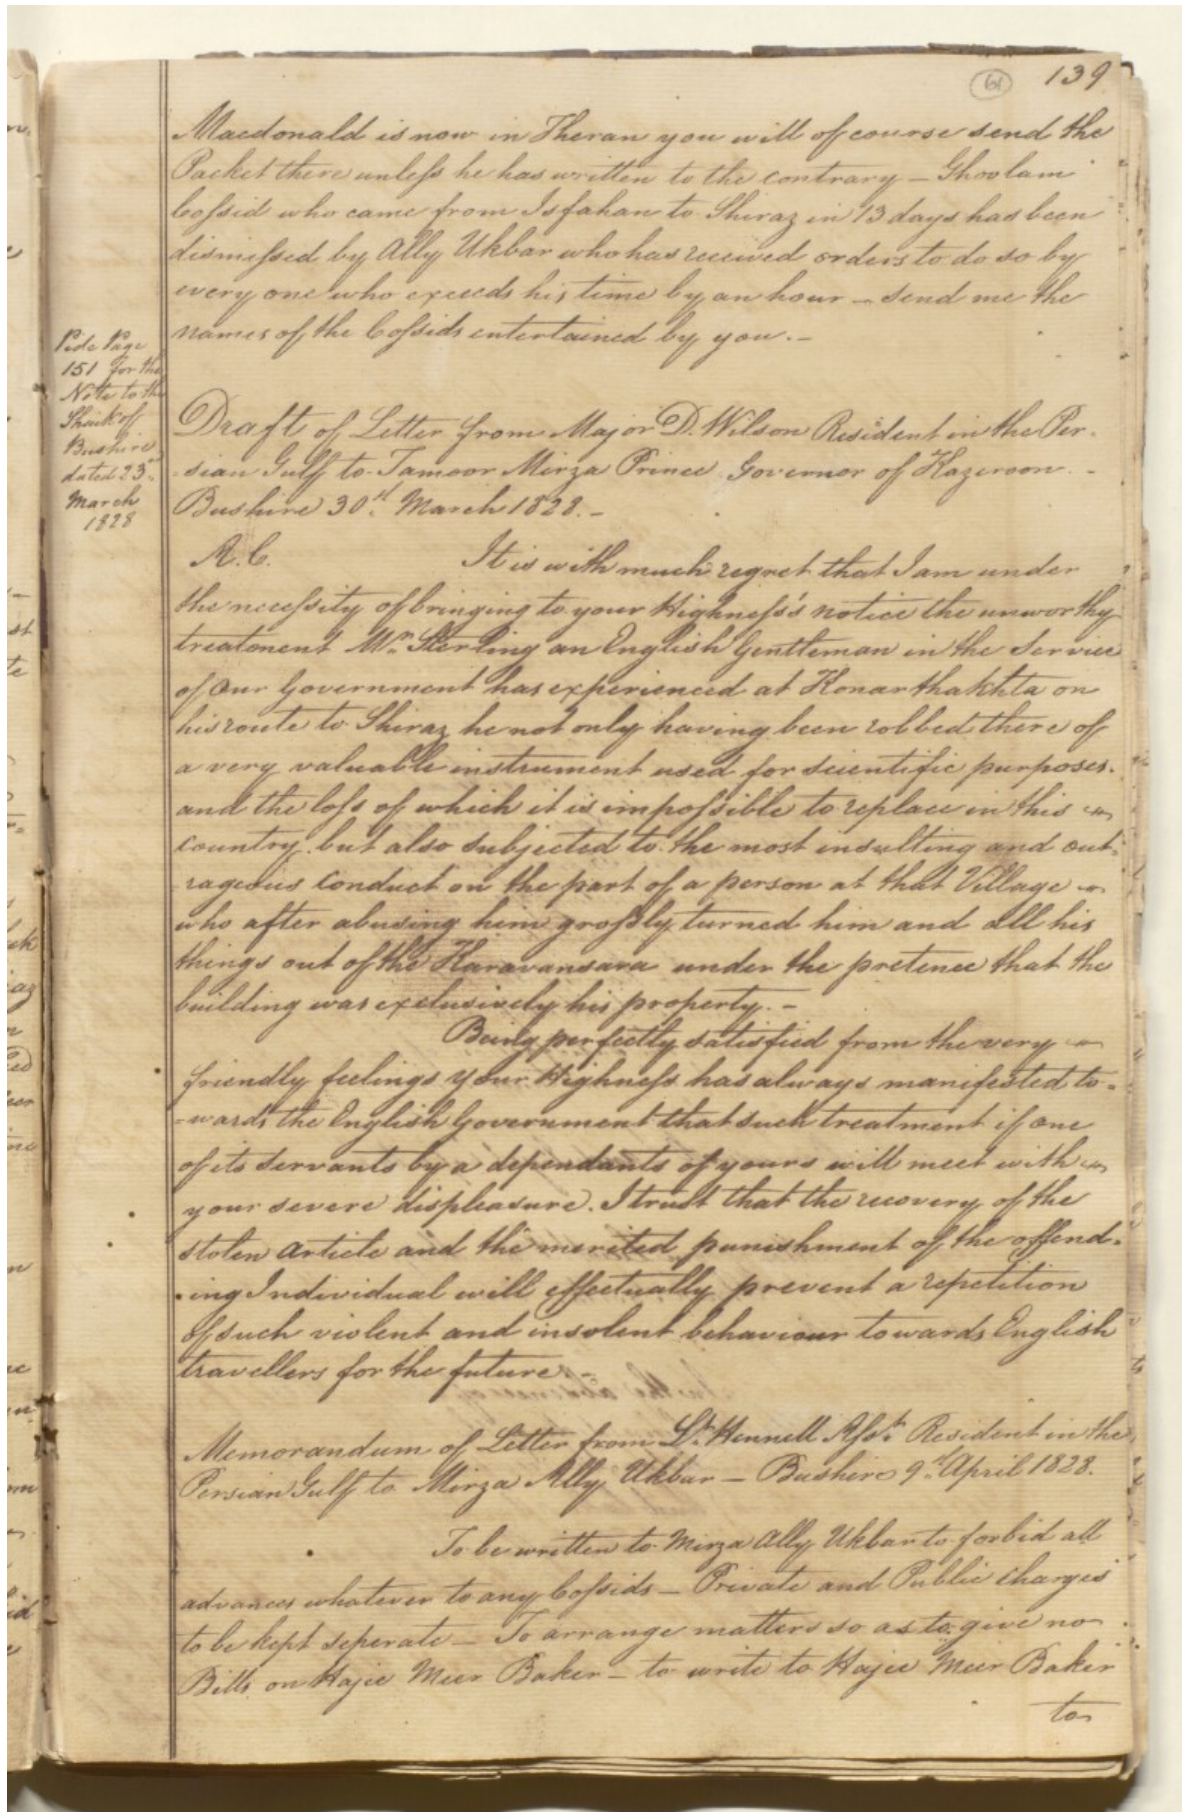 61 139
Macdonald is now in Theran you will of course send the
Packet there unless he has written to the contrary – Ghoolam
Cossid who came from Isfahan to Shiraz in 13 days has been
dismissed by Ally Ukbar who has received orders to do so by
every one who exceeds his time by an hour – send me the
names of the Cossids entertained by you. –
Vide Page
151 for the
Note to the
Shaik of
Bushire
dated 23d
March
1828
Draft of Letter from Major D. Wilson Resident in the Per-
-sian Gulf to Tamoor Mirza Prince Governor of Kazeroon. –
Bushire 30th March 1828. –
A.C. It is with much regret that I am under
the necessity of bringing to your Highness's notice the unworthy
treatment Mr. Sterling an English Gentleman in the Service
of our Government has experienced at Konarthakhta on
his route to Shiraz he not only having been robbed there of
a very valuable instrument used for scientific purposes.
and the loss of which it is impossible to replace in this
country. but also subjected to the most insulting and out-
rageous conduct on the part of a person at that Village
who after abusing him grossly turned him and all his
things out of the Karavansara under the pretence that the
building was exclusively his property. –
Being perfectly satisfied from the very
friendly feelings your Highness has always manifested to=
=wards the English Government that such treatment if one
of its servants by a dependants of yours will meet with
your severe displeasure. I trust that the recovery of the
stolen article and the merited punishment of the offend-
-ing Individual will effectually prevent a repetition
of such violent and insolent behaviour towards English
travellers for the future –
Memorandum of Letter from Lt. Hennell Asst. Resident in the
Persian Gulf to Mirza Ally Ukbar – Bushire 9th April 1828.
To be written to Mirza Ally Ukbar to forbid all
advances whatever to any Cossids – Private and Public charges
to be kept seperate – To arrange matters so as to give no
Bills on Hajee Meer Baker – to write to Hajee Meer Baker
to